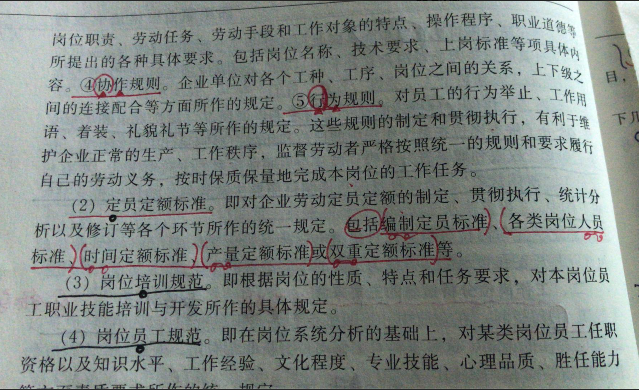 岗位职责、劳动任务、劳动手段和工作对象的特点、操作程序、职业道德等
所提出的各种具体要求。包括岗位名称、技术要求、上岗标准等项具体内
容。④协作规则。企业单位对各个工种、工序、岗位之间的关系，上下级之
间的连接配合等方面所作的规定。⑤行为规则。对员工的行为举止、工作用
语、着装、礼貌礼节等所作的规定。这些规则的制定和贯彻执行，有利于维
护企业正常的生产、工作秩序，监督劳动者严格按照统一的规则和要求履行
自己的劳动义务，按时保质保量地完成本岗位的工作任务。
（2）定员定额标准。即对企业劳动定员定额的制定、贯彻执行、统计分
析以及修订等各个环节所作的统一规定。包括编制定员标准、各类岗位人员
标准、时间定额标准、产量定额标准或双重定额标准等。
（3）岗位培训规范。即根据岗位的性质、特点和任务要求，对本岗位员
工职业技能培训与开发所作的具体规定。
（4）岗位员工规范。即在岗位系统分析的基础上，对某类岗位员工任职
资格以及知识水平、工作经验、文化程度、专业技能、心理品质、胜任能力
目，
下几